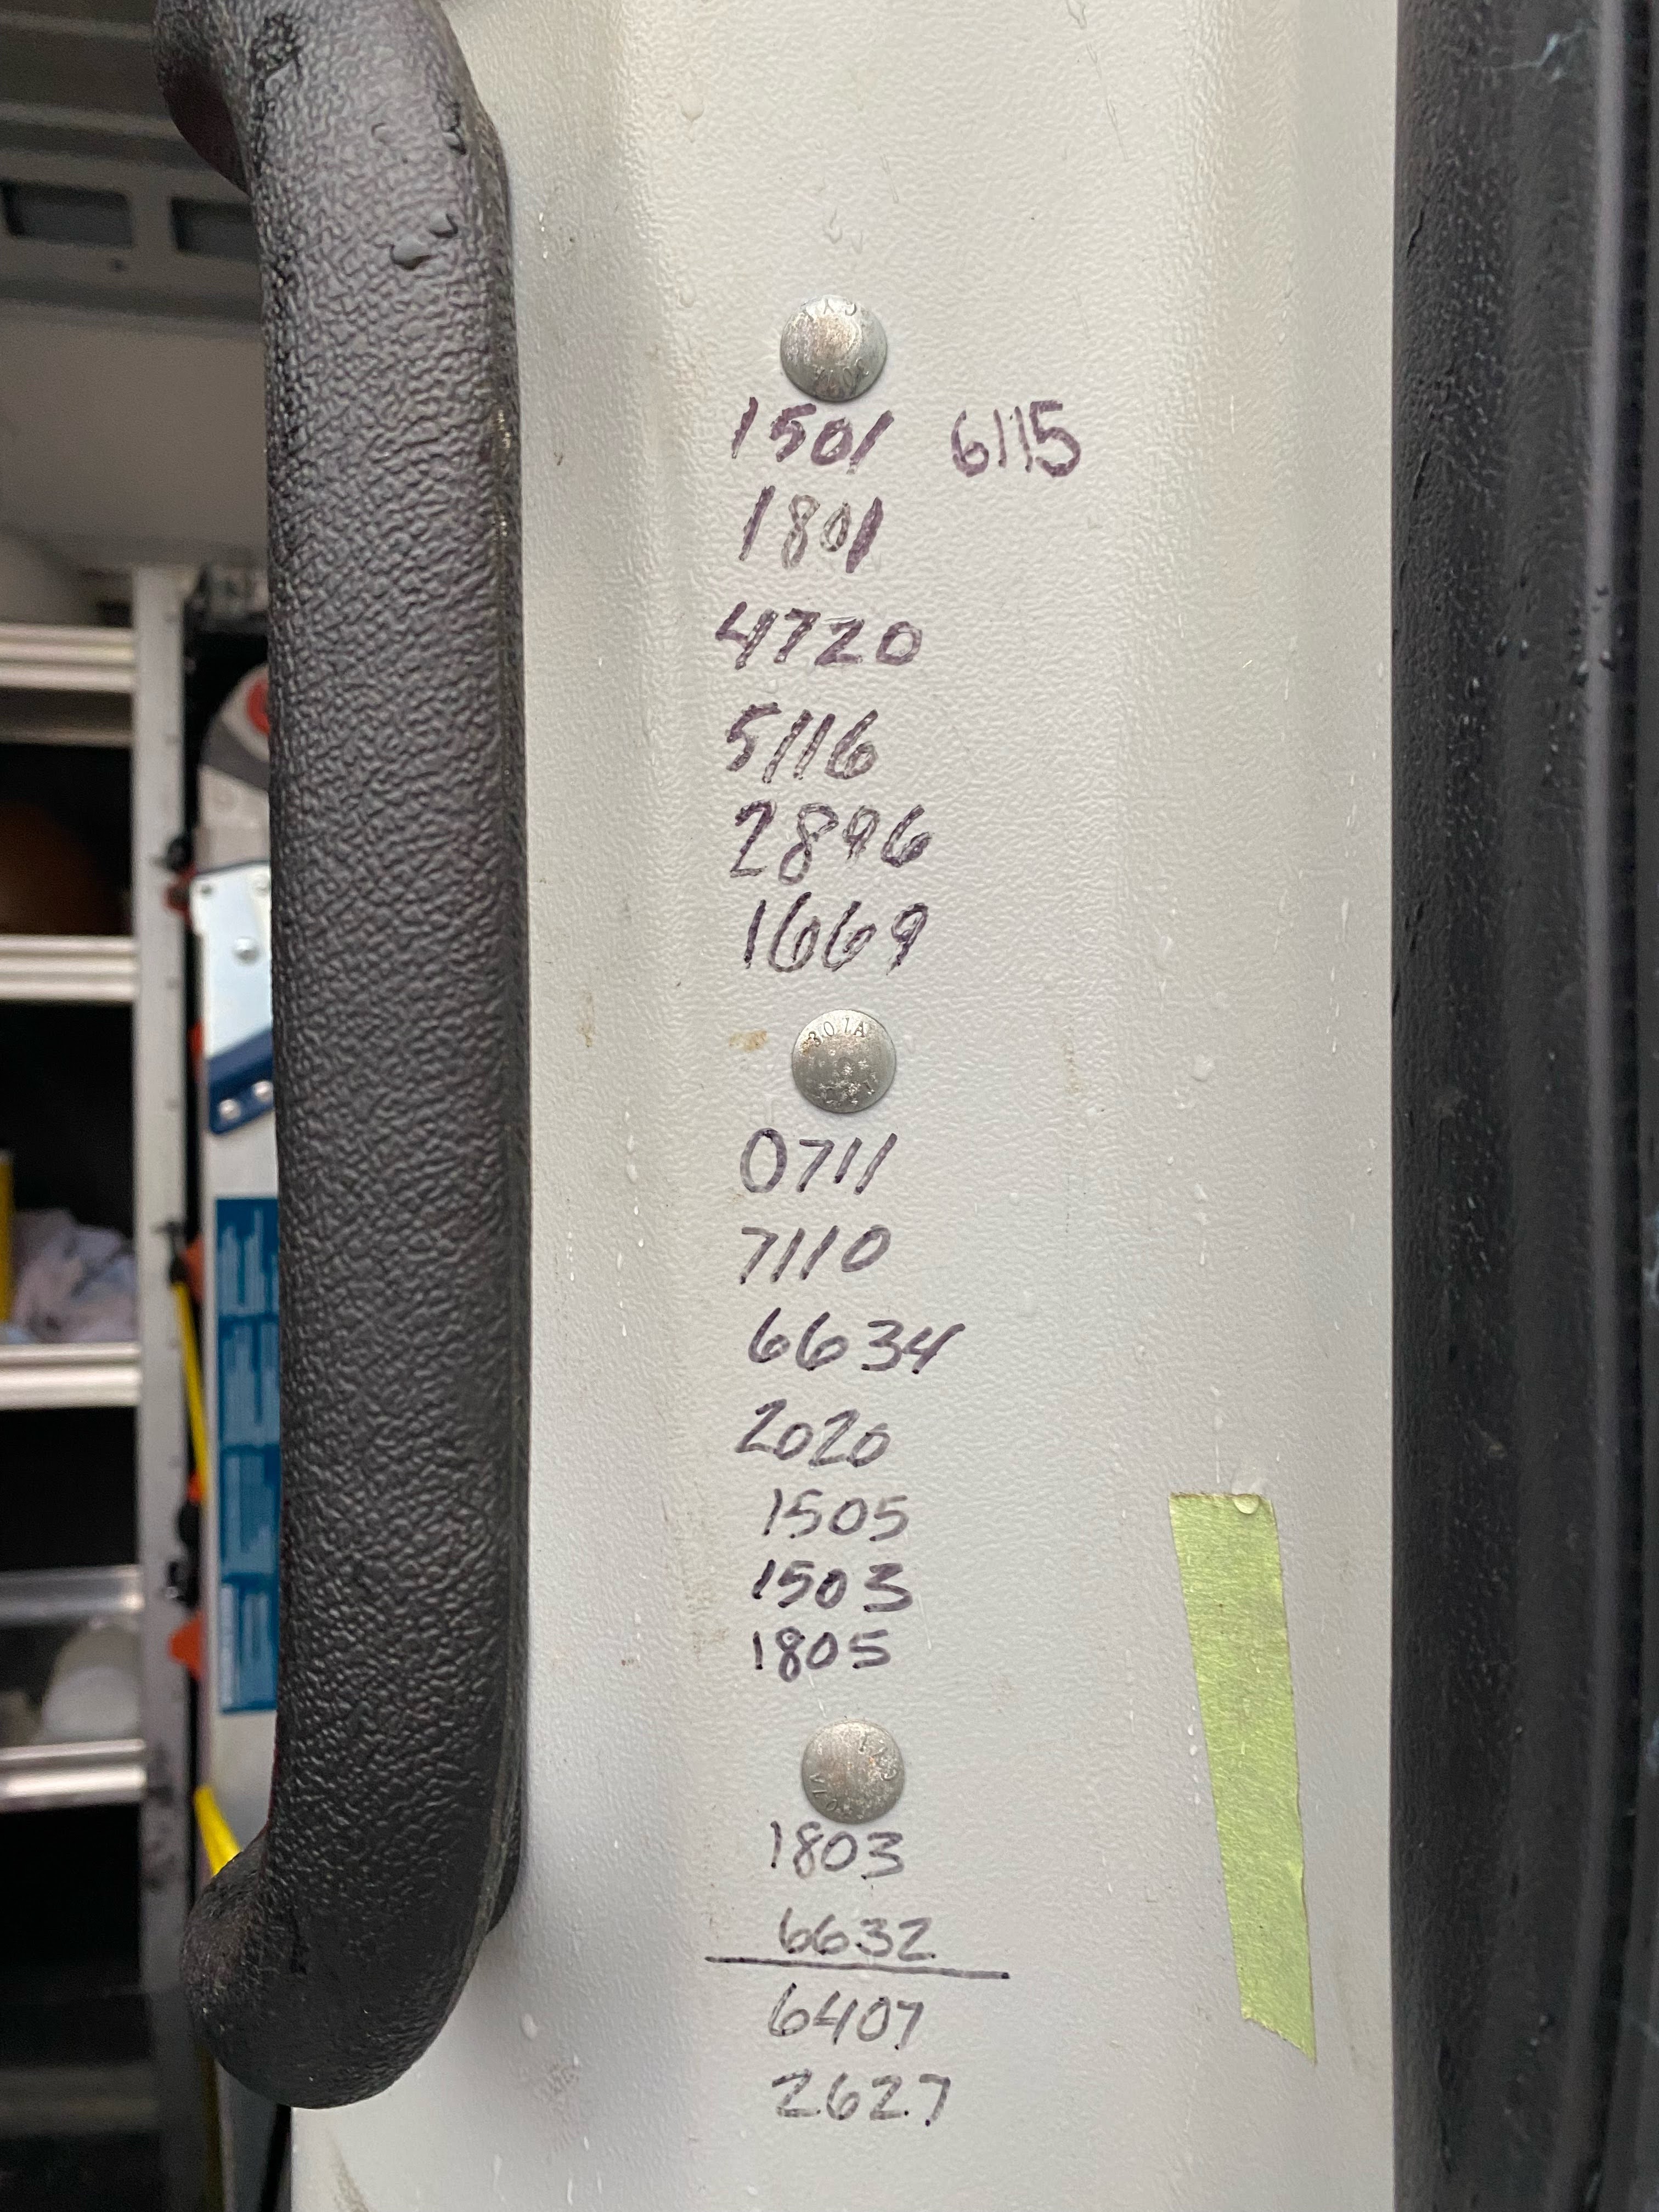 1501 6115
1801
4720
5116
2896
1669
307A
0711
7110
6634
2020
1505
1503
1805
1803
6632
6407
2627